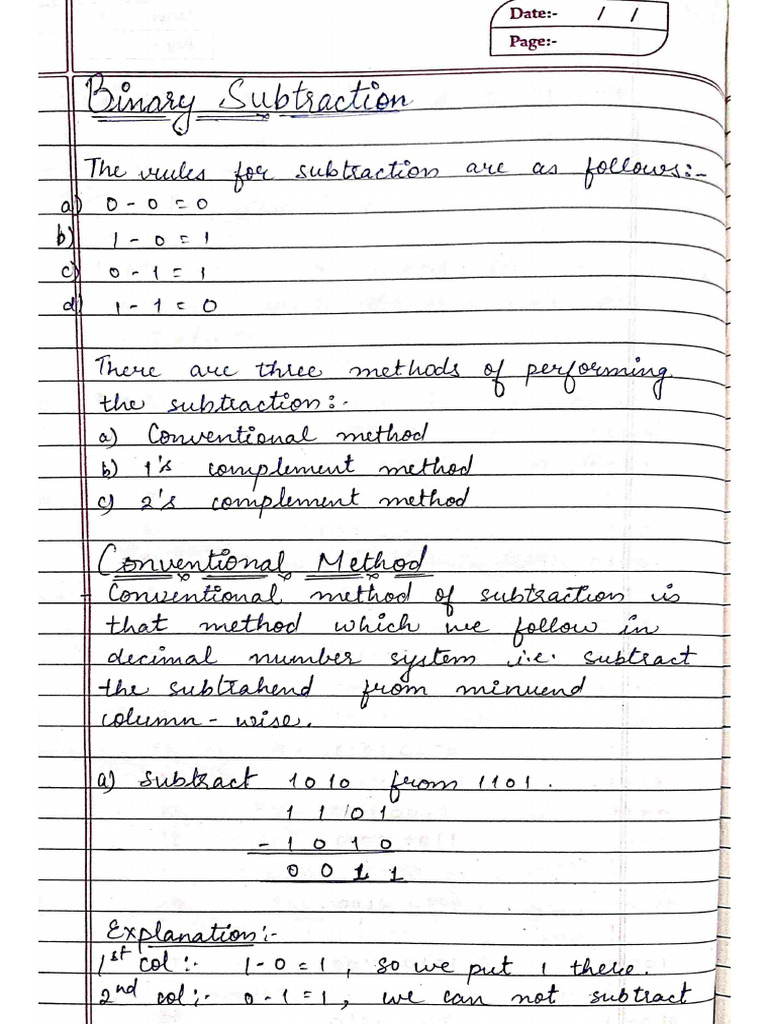 Date:- / /
Page:-
Binary Subtraction
The rules for subtraction are as follows:-
a) 0 - 0 = 0
b) 1 - 0 = 1
c) 0 - 1 = 1
d) 1 - 1 = 0
There are three methods of performing
the subtraction:-
a) Conventional method
b) 1's complement method
c) 2's complement method
Conventional Method
- Conventional method of subtraction is
that method which we follow in
decimal number system i.e. subtract
the subtrahend from minuend
column-wise.
a) Subtract 1010 from 1101.
1 1 0 1
- 1 0 1 0
0 0 1 1
Explanation:-
1st col:- 1-0=1, so we put 1 there.
2nd col:- 0-1=1, we can not subtract